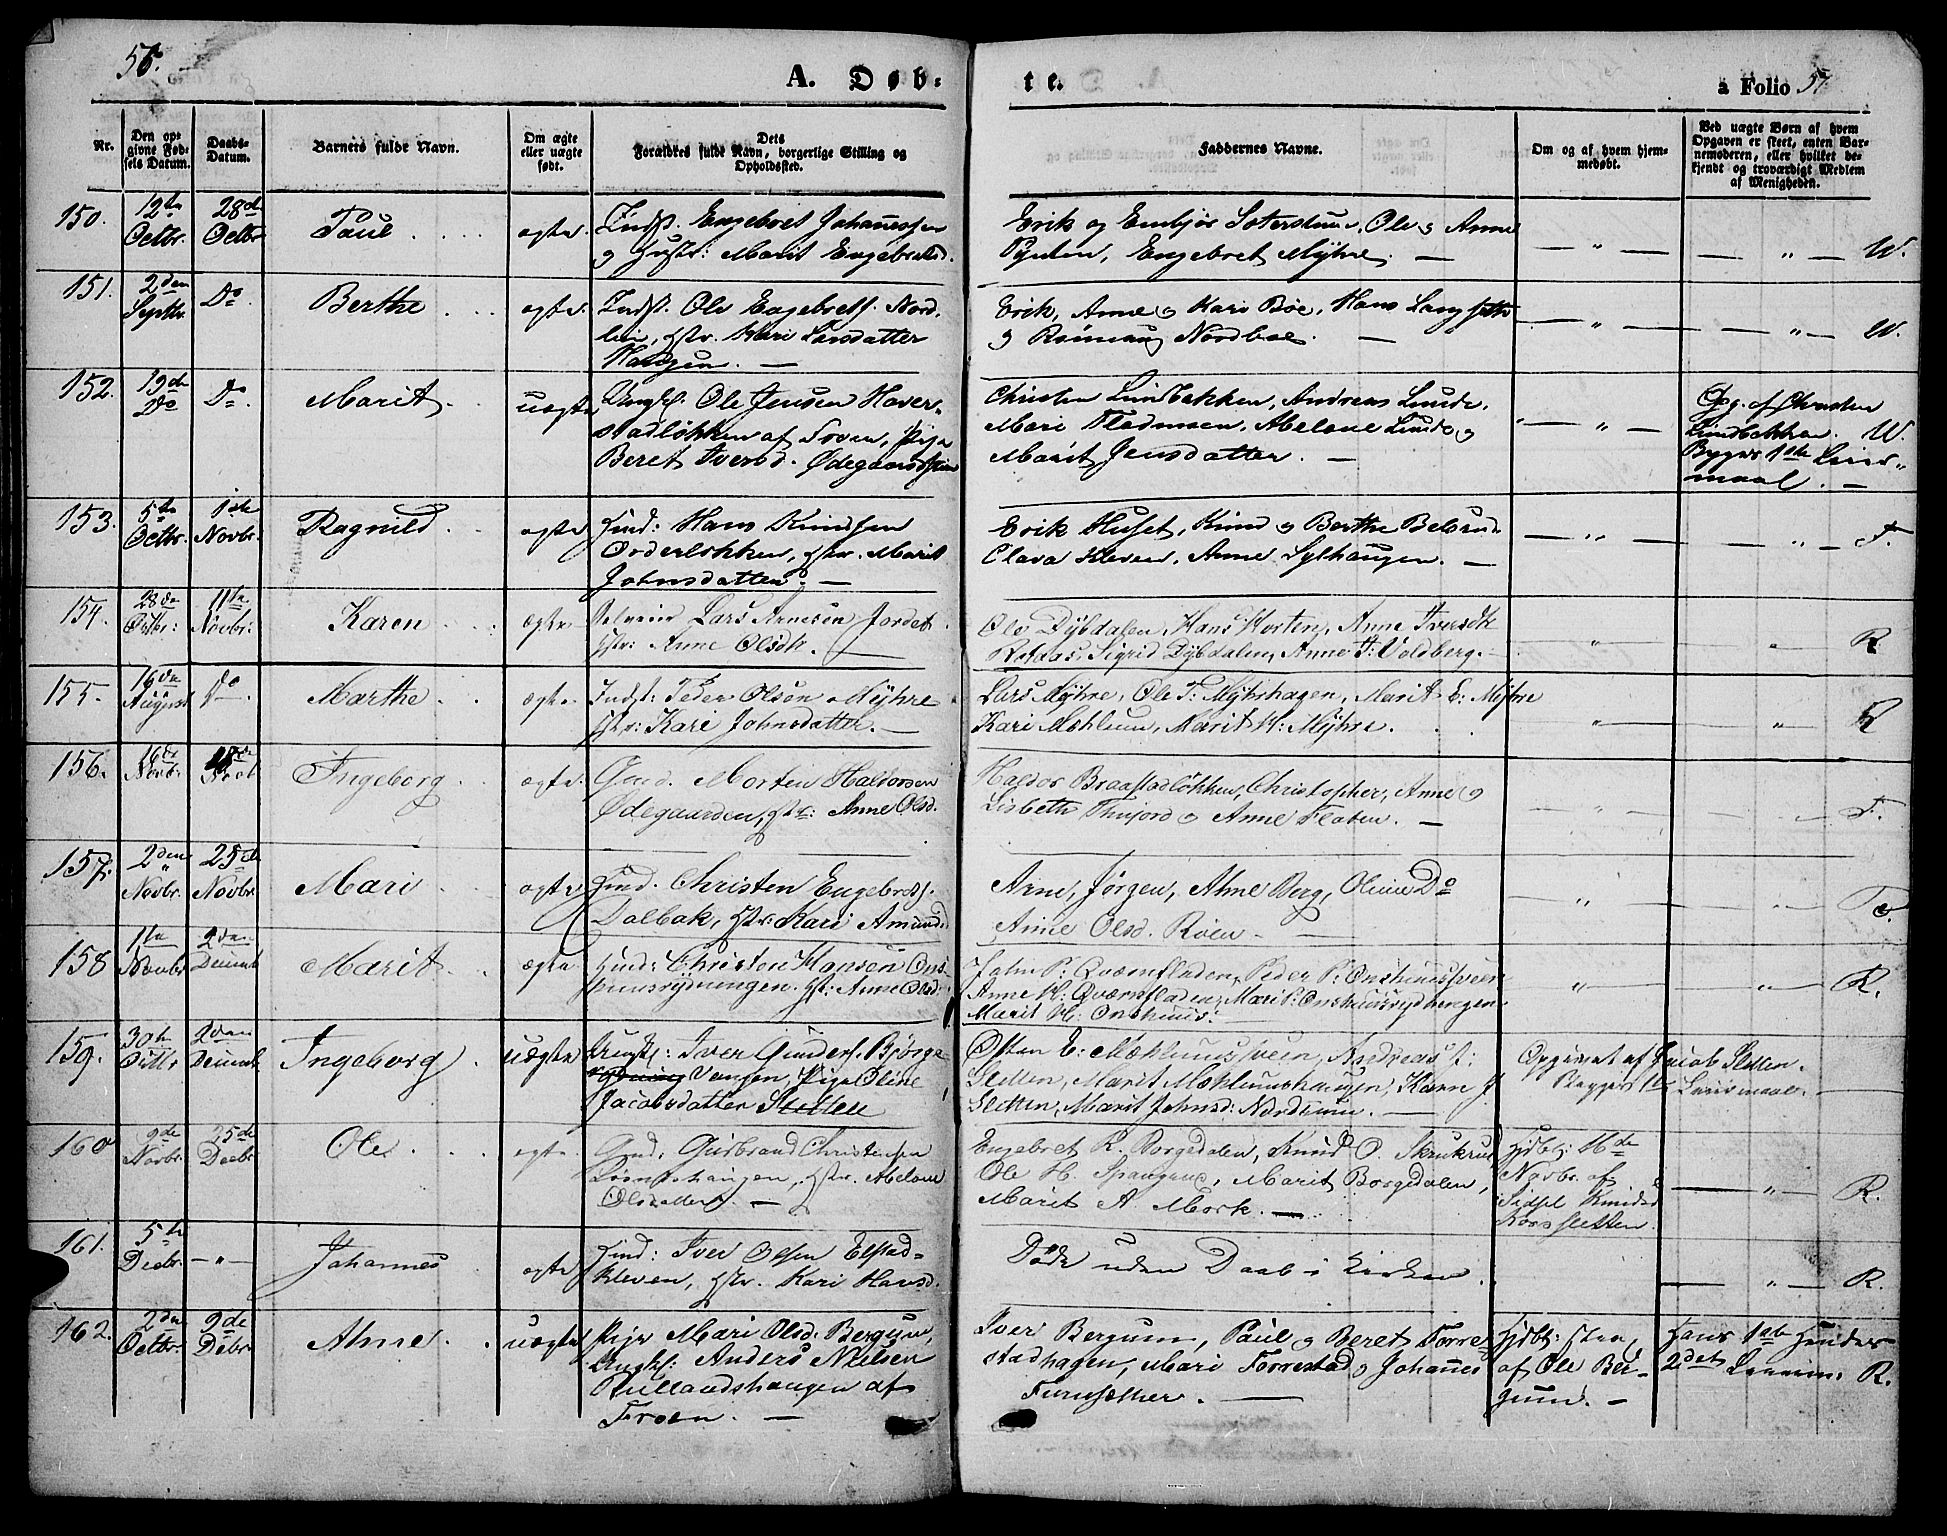 56.
A. Døb=
te.
a Folio 57
Nr.
Den op=
givne Fød=
sels Datum.
Daabs=
Datum.
Barnets fulde Navn.
Om ægte
eller uægte
født.
Dets
Forældres fulde Navn, borgerlige Stilling og
Opholdssted.
Faddernes Navne.
Om og af hvem hjem=
medøbt.
Ved uægte Børn af hvem
Opgaven er skeet, enten Bar=
nemoderen, eller hvilket be=
kjendt og troværdigt Medlem
af Menigheden.
150.
12te
Octbr.
28de
Octbr
Paul
ægte.
Indst. Engebret Johannessen
og Hustr: Marit Engebretsd.
Erik og Embjør Sæterstuen, Ole og Anne
Pynten, Engebret Myhre. —
— " —
— " — W.
151.
2den
Septbr.
Do.
Berthe
ægte.
Indst. Ole Engebrets. Nord=
lien, Hstr. Kari Larsdatter
Haugen. —
Erik, Anne og Kari Bøe, Hans Langseth
og Rønnaug Nordboe. —
— " —
— " — W.
152.
19de
Do
Do.
Marit
uægte
Ungk. Ole Jensen Haver=
stadløkken af Froen, Pige
Beret Iversd. Ødegaardsstuen
Christen Lindbakken, Andreas Lunde,
Mari Fladmoen, Abelone Lunde og
Marit Jensdatter. —
— " —
Opg. af Christen
Lindbakken. W.
Bygges 1ste Leier=
maal. —
153.
5te
Octbr.
1ste
Novbr.
Ragnild
ægte
Hmd: Hans Knudsen
Orderløkken, Hstr. Marit
Johnsdatter. —
Erik Huset, Knud og Berthe Belsrud
Clara Kleven, Anne Sylhaugen. —
— " —
— " — F.
154.
28de
Octbr:
11te
Novbr:
Karen
ægte.
Selveier Lars Arnesen Jordet.
Hstr: Anne Olsdtr. —
Ole Dybdalen, Hans Horten, Anne Iversdtr
Rofaas, Sigrid Dybdalen, Anne T: Voldberg.
"
" R.
155.
16de
August
Do
Marthe
ægte.
Indst: Peder Olsen Myhre
Hstr: Kari Johnsdatter. —
Lars Myhre, Ole T: Myhrhagen, Marit E: Myhre
Kari Mæhlum, Marit H: Myhre.
"
" R
156.
16de
Novbr.
18de
Ingeborg
ægte.
Gmd. Morten Haldorsen
Ødegaarden, Hstr: Anne Olsd.
Haldor Braastadløkken, Christopher, Anne og
Lisbeth Thuford og Anne Floten. —
— " —
— " — F.
157.
2den
Novbr.
25de
Novbr.
Mari
ægte
Hmd. Christen Engebrets.
Dalbak, Hstr: Kari Amundsd.
Arne, Jørgen, Anne Berg, Oline Do
Anne Olsd. Roen. —
"
"
158
11te
Novbr
2den
Decemb
Marit
ægte
Hmd: Christen Hansen Ons=
huusrydningen. Hstr: Anne Olsd:
John P: Qværnfladen, Peder P: Onshuussveen
Anne H: Qværnfladen, Mari P: Onshuusrydningen
Marit H: Onshuus.
"
" R.
159.
30te
Octbr
2den
Decemb
Ingeborg
uægte
Ungk: Iver Gunders. Bjørge
Vensen, Pige Oline
Jacobsdatter Sletten
Østen E: Mæhlumsveen, Andreas J:
Sletten, Marit Mæhlumshaugen, Karen J
Sletten, Marit Johnsd: Nordrum. —
Opgivet af Jacob Sletten.
Begges 1ste Leiermaal. —
160
9de
Novbr.
25de
Decbr.
Ole
ægte.
Gmd. Gudbrand Christensen
Hstr. Abelone
Olsdatter. —
Engebret R. Borgedalen, Knud O. Skrukrud
Ole H. Spangrud, Marit Borgedalen,
Marit A. Mork. —
Hjdbt: 11te
Novbr. af
Sidsel Knudsd
Korssletten.
— " — R.
161.
5te
Decbr.
— " —
Johannes
ægte
Hmd: Iver Olsen Elstad=
kleven, Hstr. Kari Hansd.
Døde uden Daab i Kirken.
— " — R.
162.
2den
Octbr.
9de
Debr.
Anne
uægte
Pige Mari Olsd. Bergum,
Ungk: Anders Nielsen
Rullandshaugen af
Froen. —
Iver Bergum, Paul og Beret Forre=
stadhagen, Mari Forrestad og Johannes
Furusether. —
Hjdbt: strax
af Ole Ber=
gum. —
Hans 1ste Hendes
2det Leierm: R.